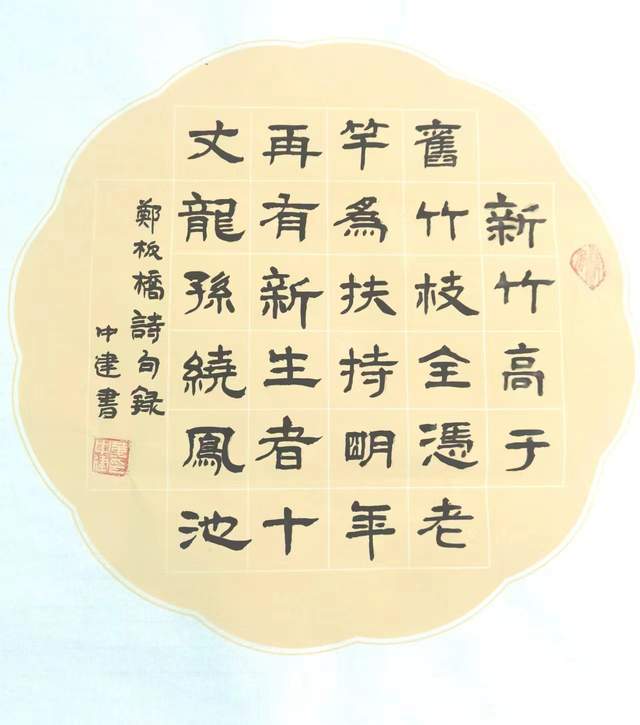 新竹高于
舊竹枝全憑老
竿為扶持明年
再有新生者十
丈龍孫繞鳳池
鄭板橋詩句錄
仲建書